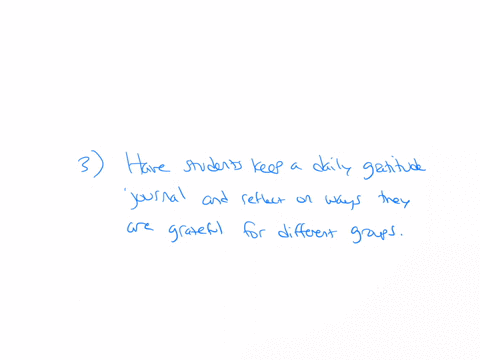 3) Have students keep a daily gratitude
journal and reflect on ways they
are grateful for different groups.